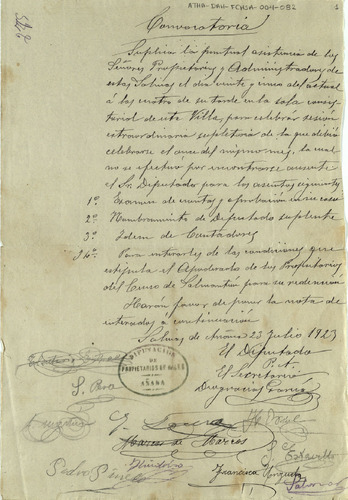 ATHA-DAH-FCHSA-004-082
Convocatoria
Suplica la puntual asistencia de los
Señores Propietarios y Administradores de
estas Salinas el día veinte y cinco del actual
á las cuatro de su tarde en la sala consis-
torial de esta Villa, para celebrar sesión
extraordinaria supletoria de la que debió
celebrarse el once del mismo mes, la cual
no se efectuó por encontrarse ausente
el Sr. Diputado para los asuntos siguientes
1º Examen de cuentas y aprobación en su caso
2º Nombramiento de Diputado suplente
3º Idem de Contadores
4º Para enterarles de las condiciones que
estipula el Apoderado de los Propietarios
del Censo de para su redención
Harán favor de poner la nota de
enterados a continuación
Salinas de Añana 23 Julio 1923
El Diputado
P. A.
El Secretario
Deogracias García
DIPUTACION DE
PROPIETARIOS DE SALINAS
AÑANA
Marcos de Marcos
Pedro
Francisca